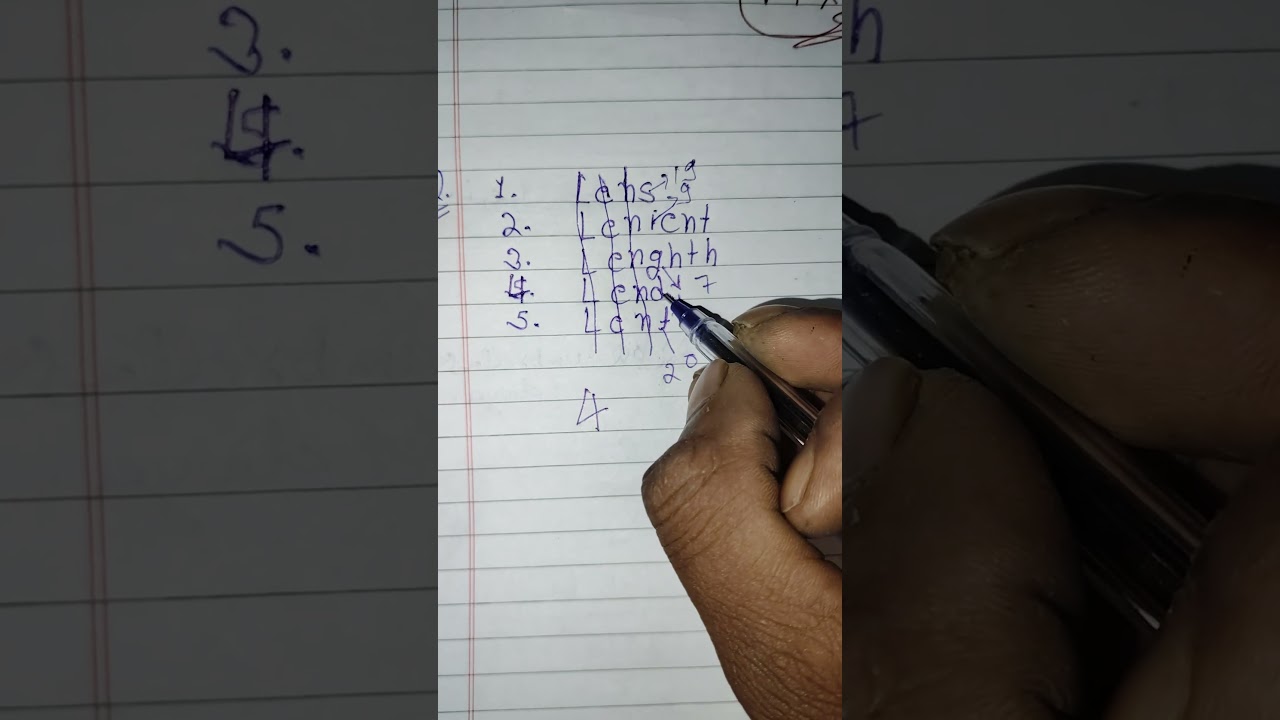 1. Lens 19
9
2. Lenient
3. Lenghth
4. Lend 7
5. Lent
20
4